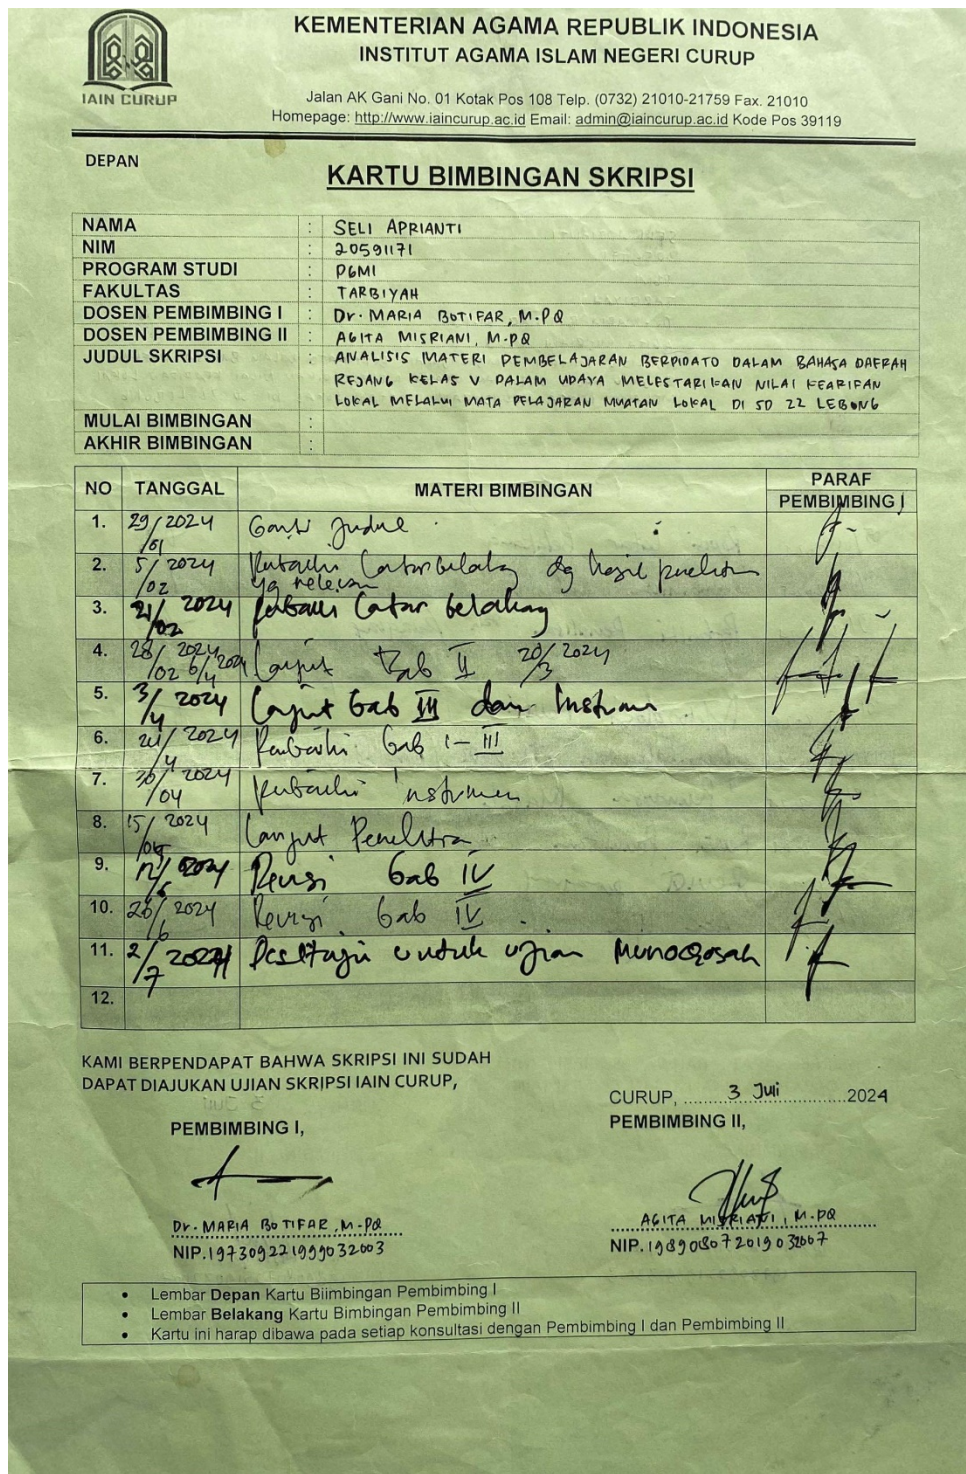 IAIN CURUP
KEMENTERIAN AGAMA REPUBLIK INDONESIA
INSTITUT AGAMA ISLAM NEGERI CURUP
Jalan AK Gani No. 01 Kotak Pos 108 Telp. (0732) 21010-21759 Fax. 21010
Homepage: http://www.iaincurup.ac.id Email: admin@iaincurup.ac.id Kode Pos 39119
DEPAN
KARTU BIMBINGAN SKRIPSI
NAMA : SELI APRIANTI
NIM : 20591171
PROGRAM STUDI : PGMI
FAKULTAS : TARBIYAH
DOSEN PEMBIMBING I : Dr. MARIA BOTIFAR, M.Pd
DOSEN PEMBIMBING II : AGITA MISRIANI, M.Pd
JUDUL SKRIPSI : ANALISIS MATERI PEMBELAJARAN BERPIDATO DALAM BAHASA DAERAH
REJANG KELAS V DALAM UPAYA MELESTARIKAN NILAI KEARIFAN
LOKAL MELALUI MATA PELAJARAN MUATAN LOKAL DI SD 22 LEBONG
MULAI BIMBINGAN :
AKHIR BIMBINGAN :
NO TANGGAL MATERI BIMBINGAN PARAF
PEMBIMBING I
1. 29/01 2024 Ganti Judul
2. 5/02 2024 Perbaiki Latar belakang dg hasil penelitian
yg relevan
3. 21/02 2024 Perbaiki Latar belakang
4. 28/02 2024 6/4 2024 Lanjut Bab II 20/3 2024
5. 3/4 2024 Lanjut bab III dan Instrumen
6. 24/4 2024 Perbaiki bab I - III
7. 30/04 2024 Perbaiki instrumen
8. 15/ 2024 Lanjut Penelitian
9. 2024 Revisi bab IV
10. 26/6 2024 Revisi bab IV
11. 2/7 2024 untuk ujian Munaqosah
12.
KAMI BERPENDAPAT BAHWA SKRIPSI INI SUDAH
DAPAT DIAJUKAN UJIAN SKRIPSI IAIN CURUP,
CURUP, 3 Juli 2024
PEMBIMBING I,
PEMBIMBING II,
Dr. MARIA BOTIFAR, M.Pd
NIP.197309221999032003
AGITA MISRIANI, M.Pd
NIP.198908072019032007
• Lembar Depan Kartu Biimbingan Pembimbing I
• Lembar Belakang Kartu Bimbingan Pembimbing II
• Kartu ini harap dibawa pada setiap konsultasi dengan Pembimbing I dan Pembimbing II